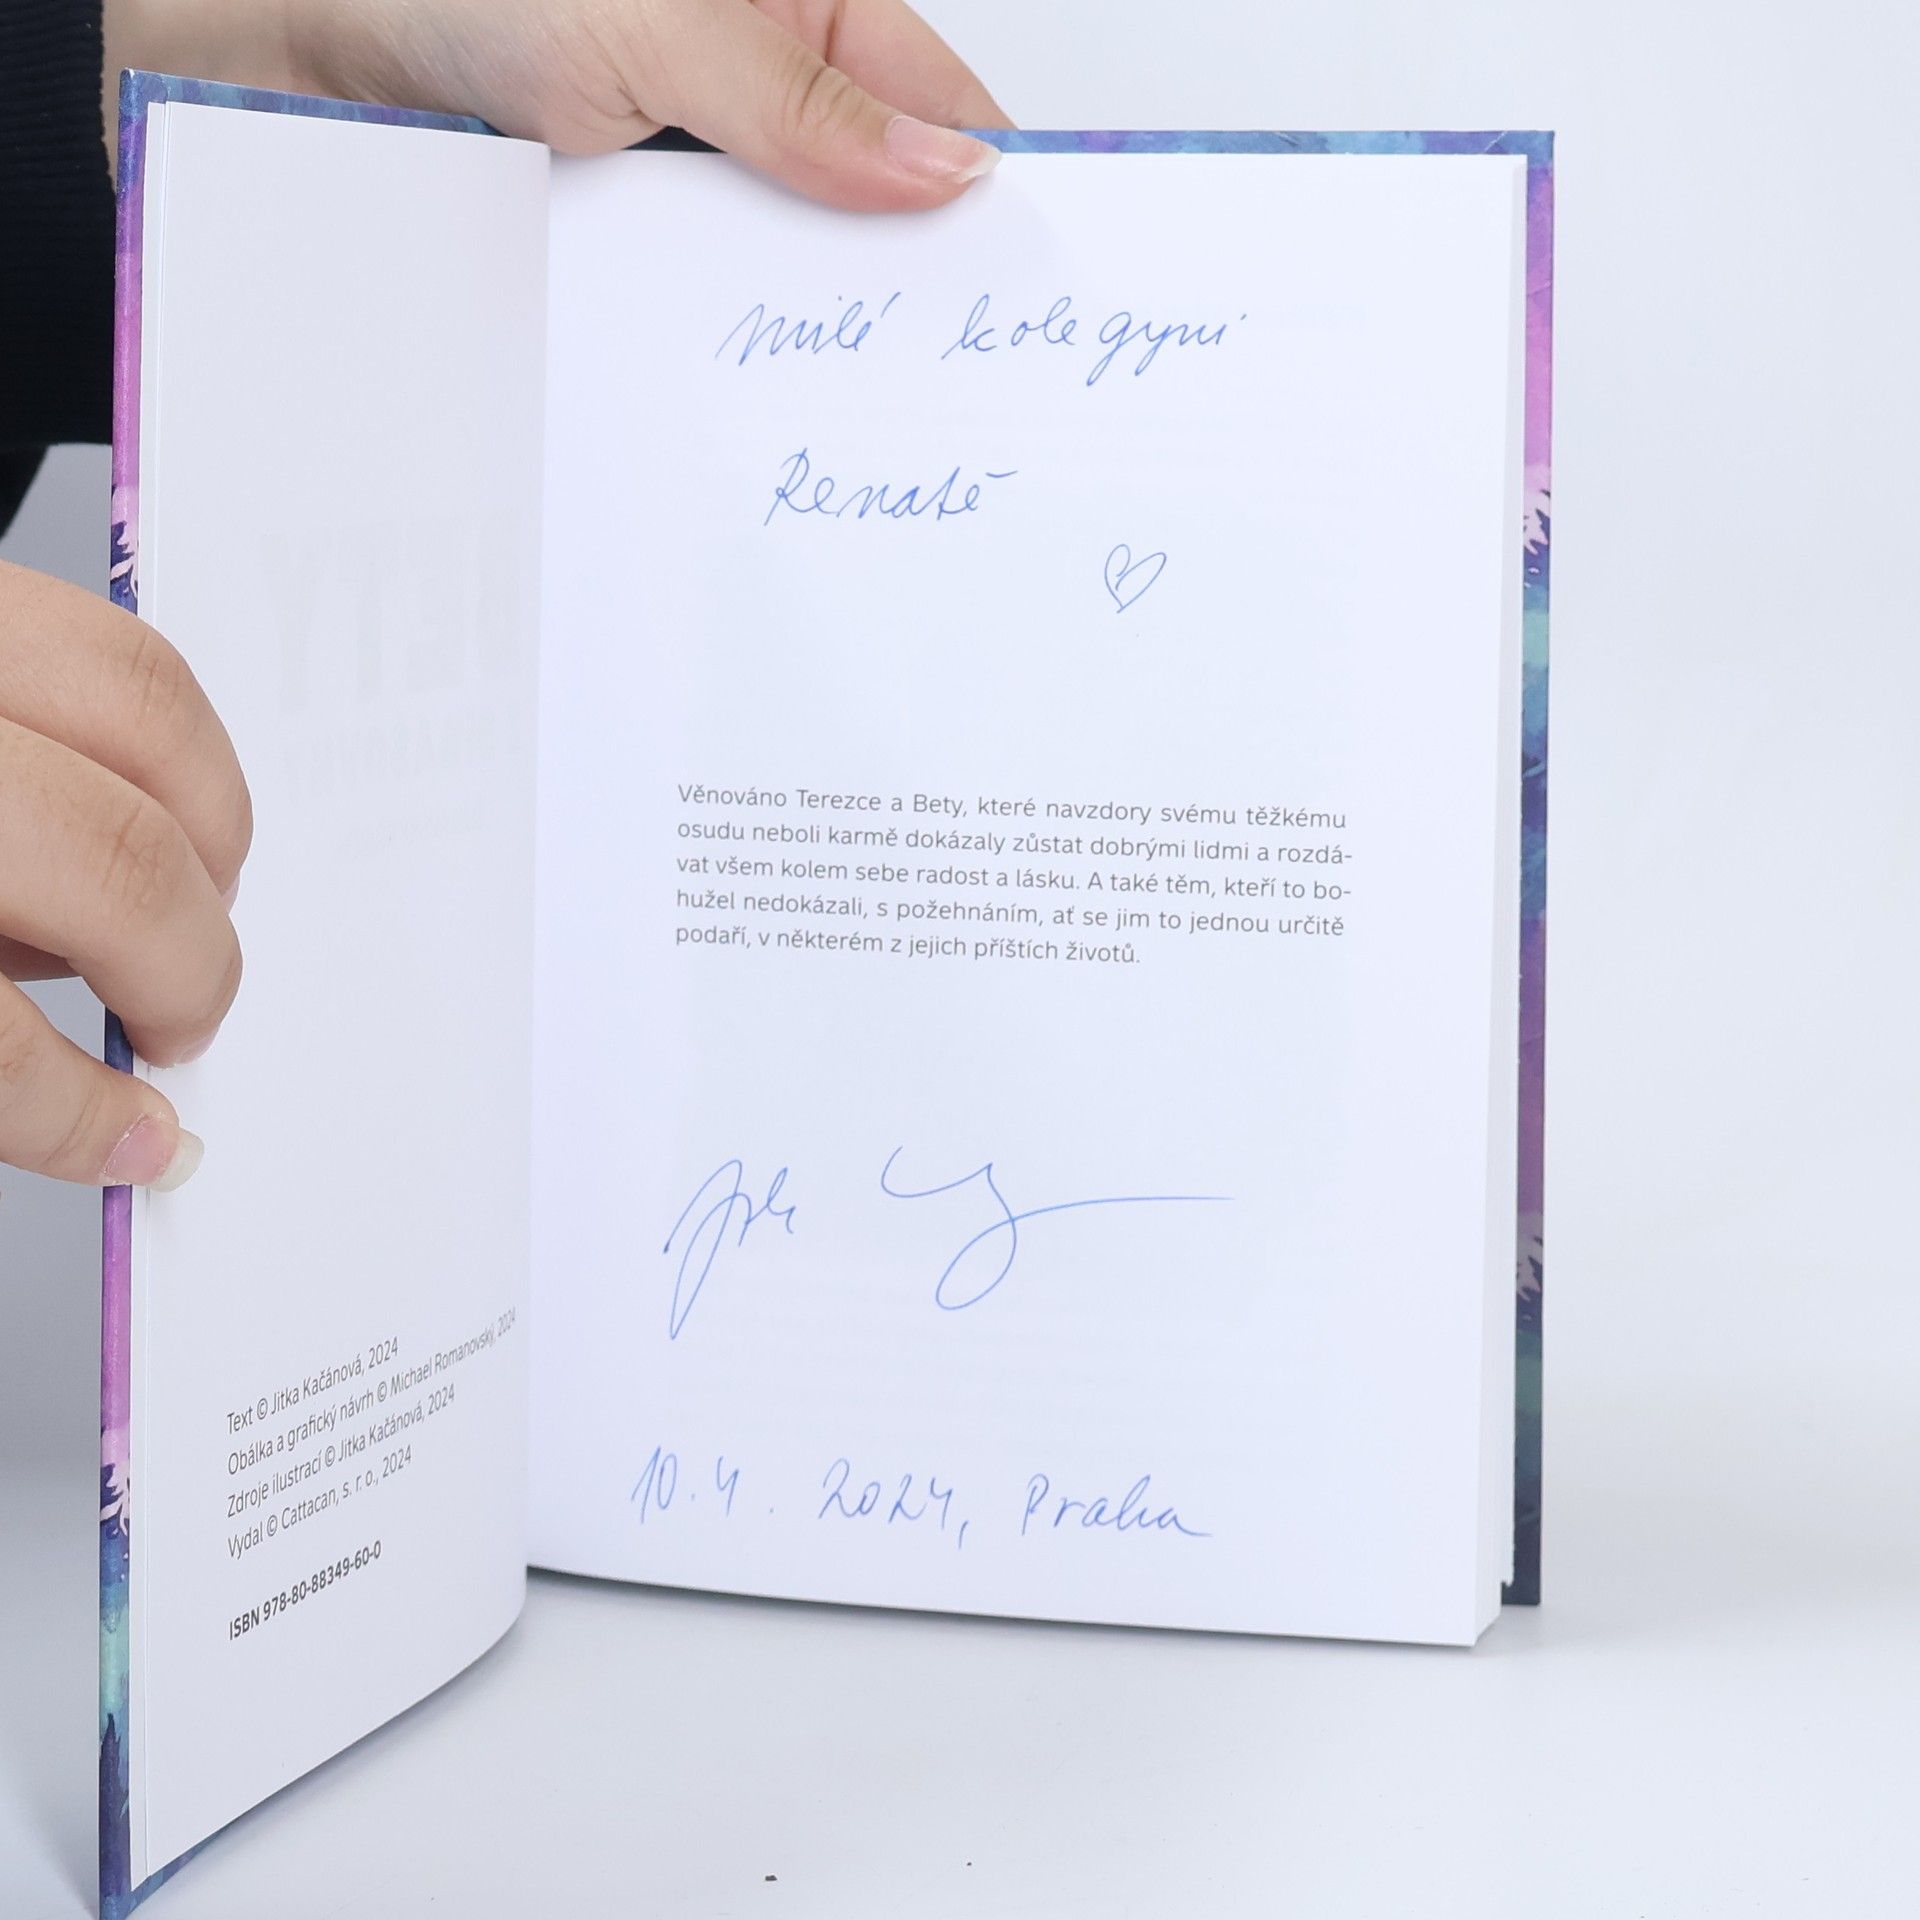 Text © Jitka Kačánová, 2024
Obálka a grafický návrh © Michael Romanovský, 2024
Zdroje ilustrací © Jitka Kačánová, 2024
Vydal © Cattacan, s. r. o., 2024
ISBN 978-80-88349-60-0
milé kolegyni
Renatě
Věnováno Terezce a Bety, které navzdory svému těžkému
osudu neboli karmě dokázaly zůstat dobrými lidmi a rozdá-
vat všem kolem sebe radost a lásku. A také těm, kteří to bo-
hužel nedokázali, s požehnáním, ať se jim to jednou určitě
podaří, v některém z jejich příštích životů.
10. 4. 2024, Praha